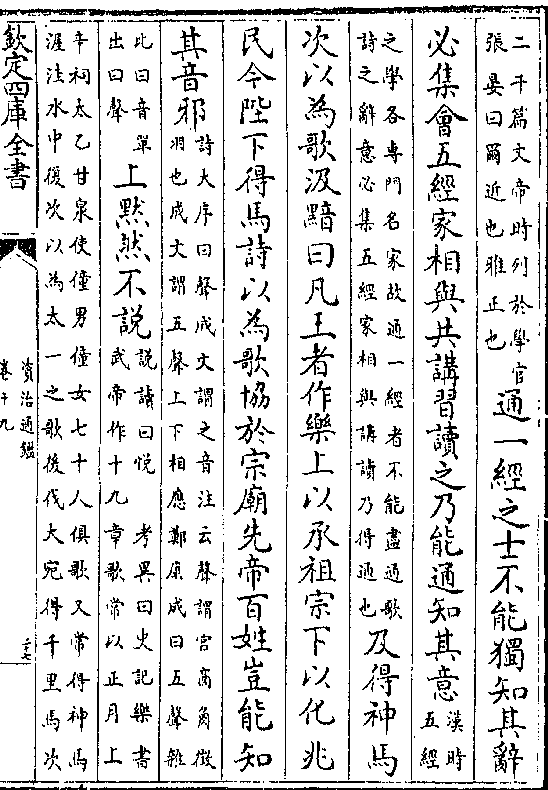 二千篇文帝時列於學官
張晏曰爾近也雅正也
通一經之士不能獨知其辭
必集會五經家相與共講習讀之乃能通知其意
漢時
五經
之學各專門名家故通一經者不能盡通歌
詩之辭意必集五經家相與講讀乃得通也
及得神馬
次以為歌汲黯曰凡王者作樂上以承祖宗下以化兆
民今陛下得馬詩以為歌協於宗廟先帝百姓豈能知
其音邪
詩大序曰聲成文謂之音注云聲謂宮商角徵
羽也成文謂五聲上下相應鄭康成曰五聲雜
比曰音單
出曰聲
上黙然不說
說讀曰悅　考異曰史記樂書
武帝作十九章歌常以正月上
辛祠太乙甘泉使僮男僮女七十人俱歌又常得神馬
渥洼水中復次以為太一之歌後伐大宛得千里馬次
欽定四庫全書
資治通鑑
卷十九
二十七